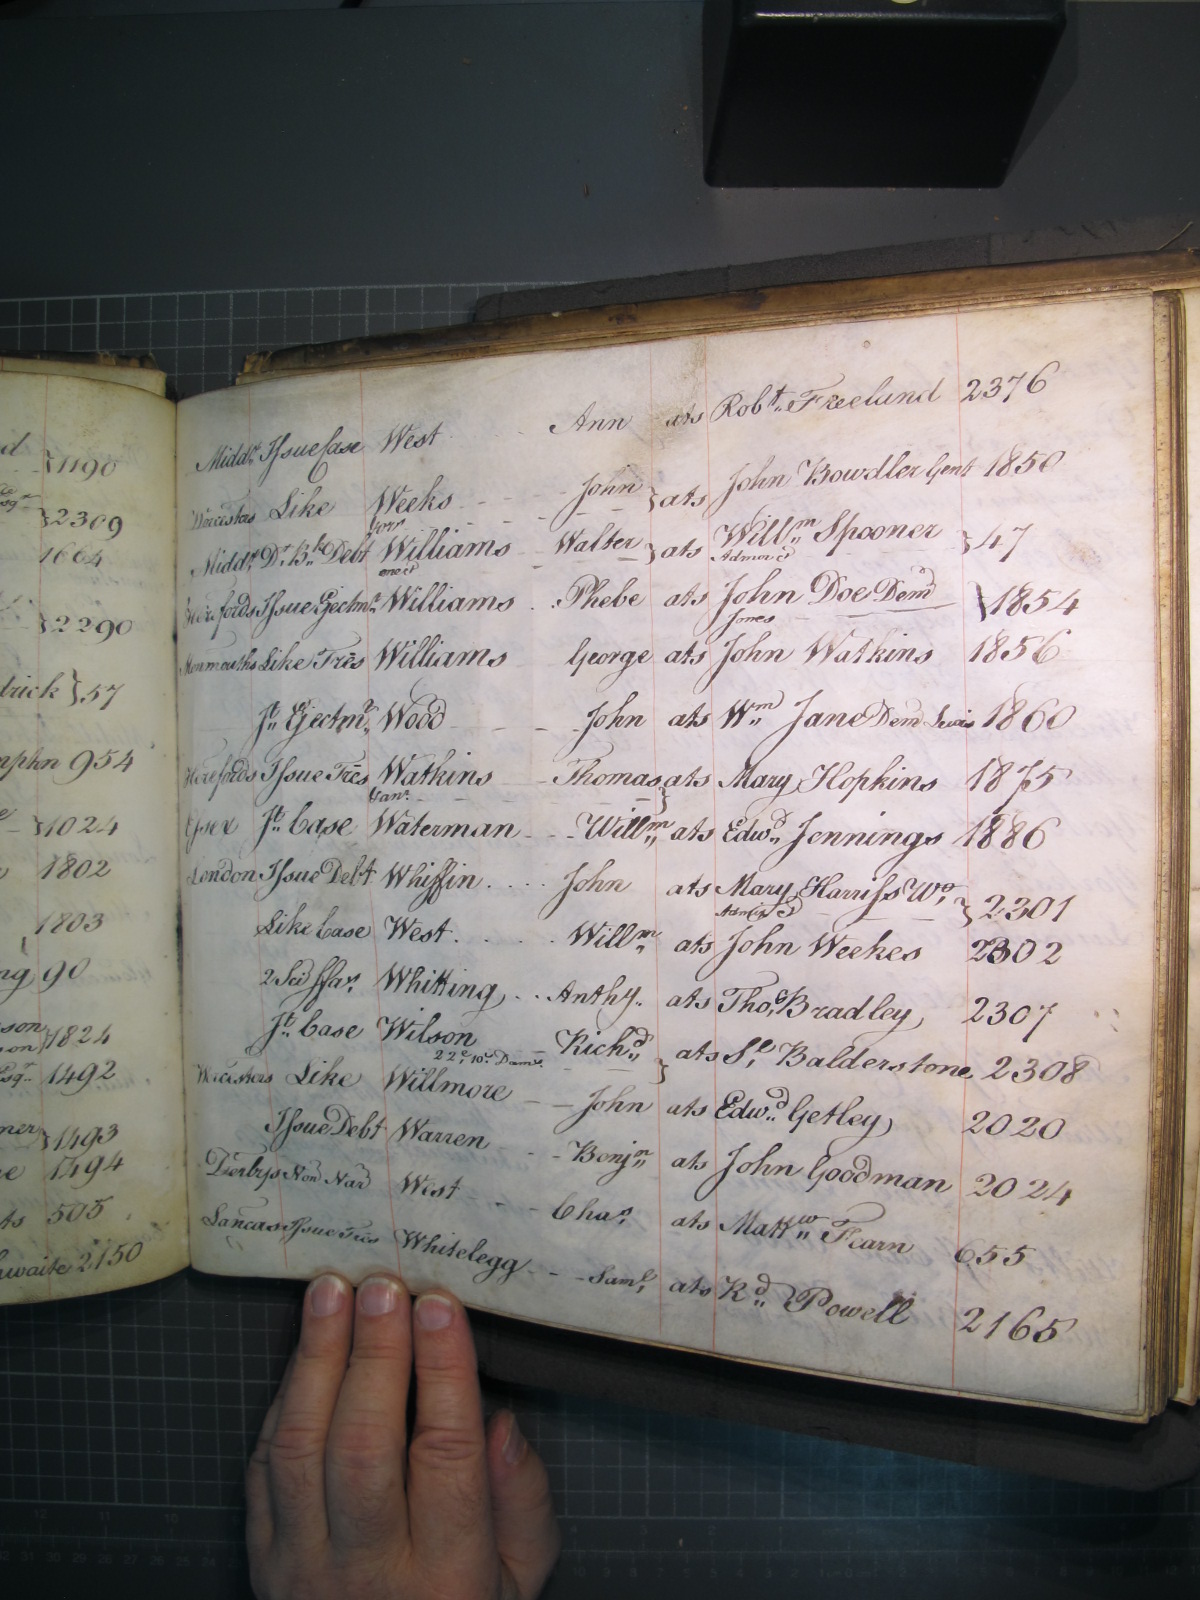 d
}1190
Esqr
}2309
1664
}2290
drick }57
mphn 954
}1024
1802
1803
ng 90
son
son }1824
Esqr 1492
ner }1493
e 1494
ts 505
hwaite 2150
Middx Issue Case West Ann ats Robt. Freelund 2376
Worcesters Like Weeks John } ats John Bowdler Gent 1850
Middx Dr. Bk. Debt Williams Walter } ats Willm Spooner } 47
Admor &c
Herefords Issue Ejectmt Williams Phebe ats John Doe Demd }1854
Jones
Monmouths Like Tres Williams George ats John Watkins 1856
Jt. Ejectmt. Wood John ats Wm Jane Dem Lewis 1860
Herefords Issue Tres Watkins Thomas ats Mary Hopkins 1875
Essex Jt. Case Waterman Willm ats Edwd. Jennings 1886
London Issue Debt Whiffin John ats Mary Harriss Wo. } 2301
Admix &c
Like Case West Willm ats John Weekes 2302
2 Sci ffas. Whitting Anthy. ats Thos. Bradley 2307
Jt. Case Wilson Richd. } ats Sl. Balderstone 2308
22d. 10s. Dams.
Worcesters Like Willmore John ats Edwd. Getley 2020
Issue Debt Warren Benjn ats John Goodman 2024
Derbys Non Nard West Chas. ats Mattw Fearn 655
Lancas Issue Tres Whitelegg Saml. ats Rd. Powell 2165